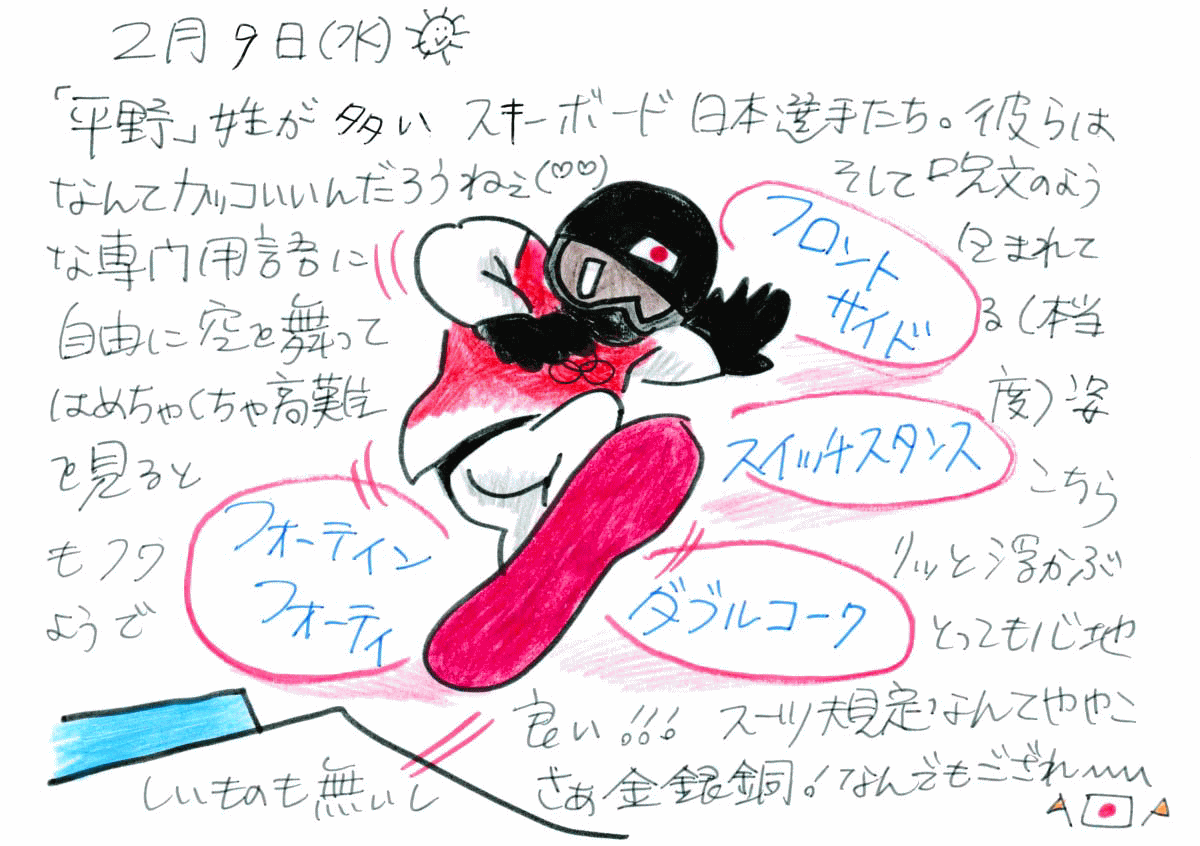 2月9日(水)
「平野」姓が多いスキーボード日本選手たち。彼らは
なんてカッコいいんだろうねぇ(♡♡) そして呪文のよう
な専門用語に 包まれて
自由に空を舞って る(本当
はめちゃくちゃ高難 度)姿
を見ると こちら
もフワ リッと浮かぶ
ようで とっても心地
良い!!! スーツ規定なんてややこ
しいものも無いし さあ金銀銅!なんでもござれ〜
フロント
サイド
スイッチスタンス
フォーティン
フォーティ
ダブルコーク